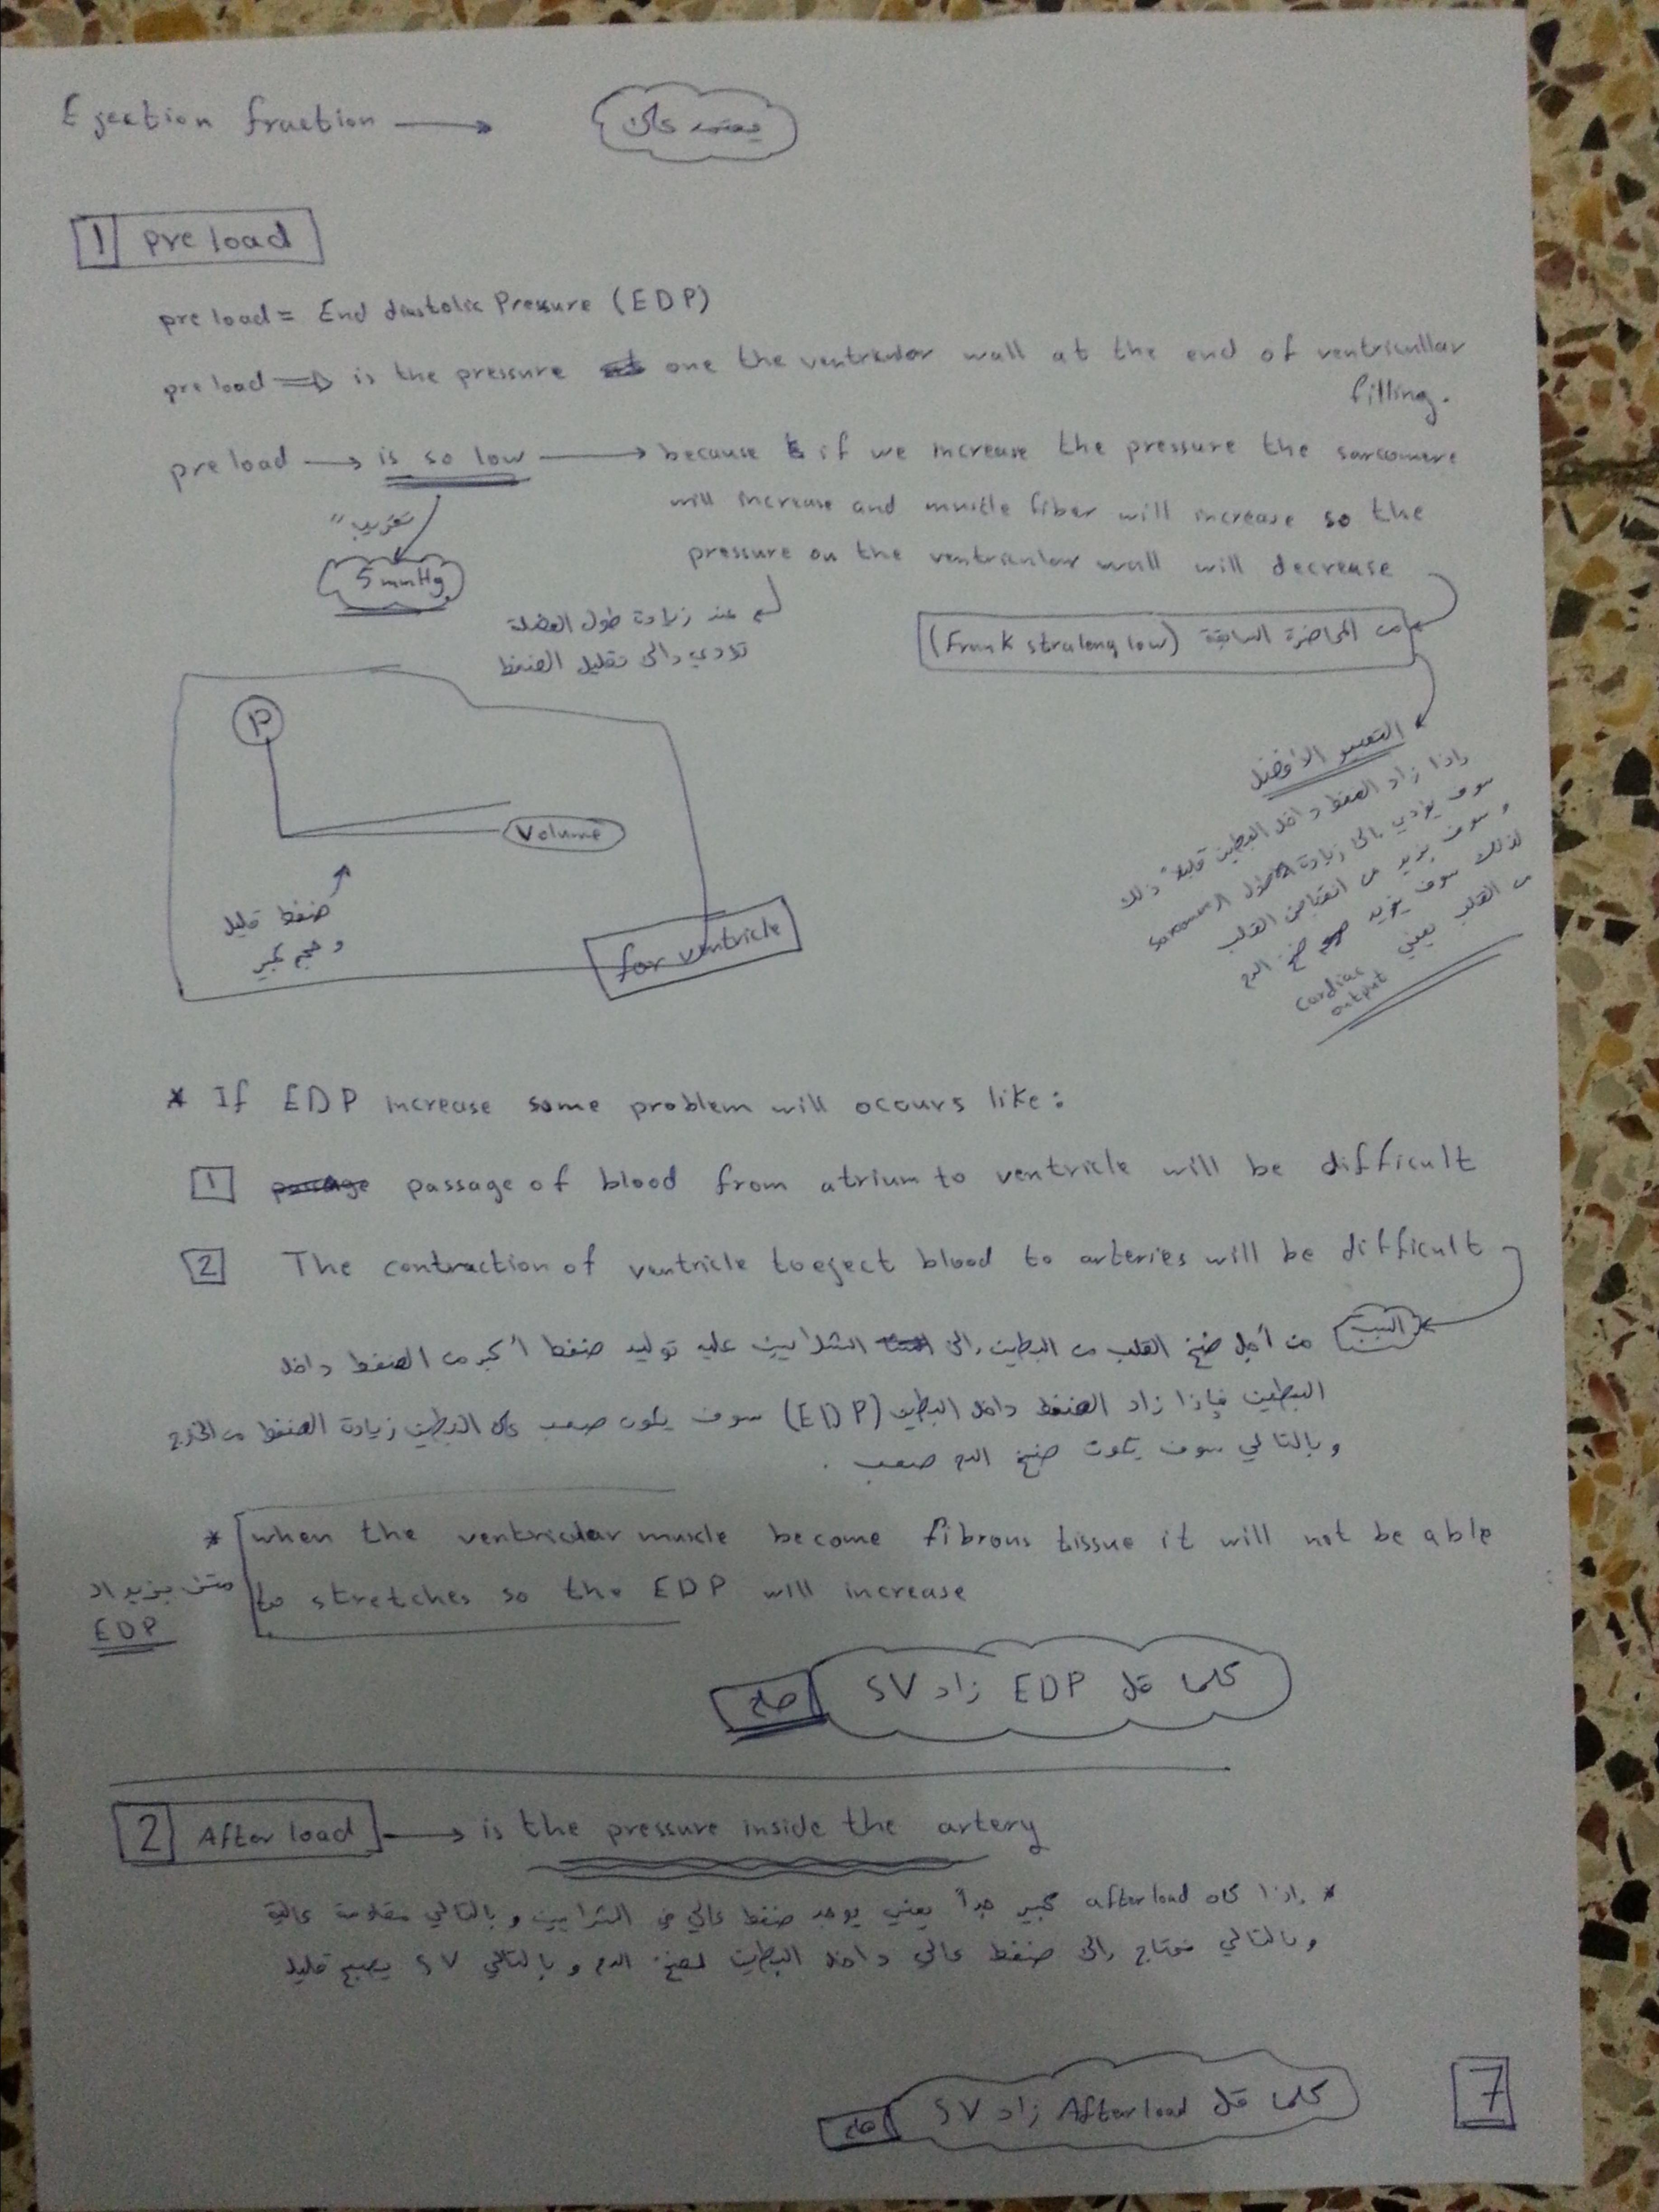 Ejection fraction →
يعتمد على
1 preload
preload = End diastolic Pressure (EDP)
preload ⇒ is the pressure one the ventricular wall at the end of ventricullar
filling.
preload → is so low → because if we increase the pressure the sarcomere
will increase and muscle fiber will increase so the
pressure on the ventricular wall will decrease
تقريباً
5 mmHg
عند زيادة طول العضلة
تؤدي إلى تقليل الضغط
من المحاضرة السابقة (Frank straleng low)
التعبير الأفضل
إذا زاد الضغط داخل البطين قليلاً ذلك
سوف يؤدي إلى زيادة طول ال sarcomere
وسوف يزيد من انقباض القلب
لذلك سوف يزيد ضخ الدم
من القلب يعني cardiac
output
P
Volume
ضغط قليل
وحجم كبير
for ventricle
* If EDP increase some problem will occurs like:
1 passage of blood from atrium to ventricle will be difficult
2 The contraction of ventricle to eject blood to arteries will be difficult
السبب من أجل ضخ القلب من البطين إلى الشرايين عليه توليد ضغط أكبر من الضغط داخل
البطين فإذا زاد الضغط داخل البطين (EDP) سوف يكون صعب على البطين زيادة الضغط من
وبالتالي سوف يكون ضخ الدم صعب .
* when the ventricular muscle become fibrous tissue it will not be able
to stretches so the EDP will increase
متى يزيد ال
EDP
كلما قل EDP زاد SV
هام
2 After load → is the pressure inside the artery
* إذا كان afterload كبير جداً يعني يوجد ضغط عالي في الشرايين وبالتالي مقاومة عالية
وبالتالي نحتاج إلى ضغط عالي داخل البطين لضخ الدم وبالتالي SV يصبح قليل
كلما قل Afterload زاد SV
هام
7